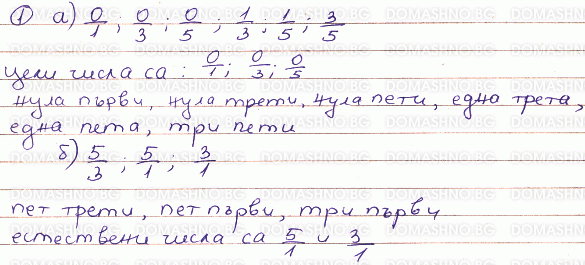 ① а) 0/1 ; 0/3 ; 0/5 ; 1/3 ; 1/5 ; 3/5
цели числа са : 0/1; 0/3; 0/5
нула първи, нула трети, нула пети, една трета,
една пета, три пети
б) 5/3 ; 5/1 ; 3/1
пет трети, пет първи, три първи
естествени числа са 5/1 и 3/1